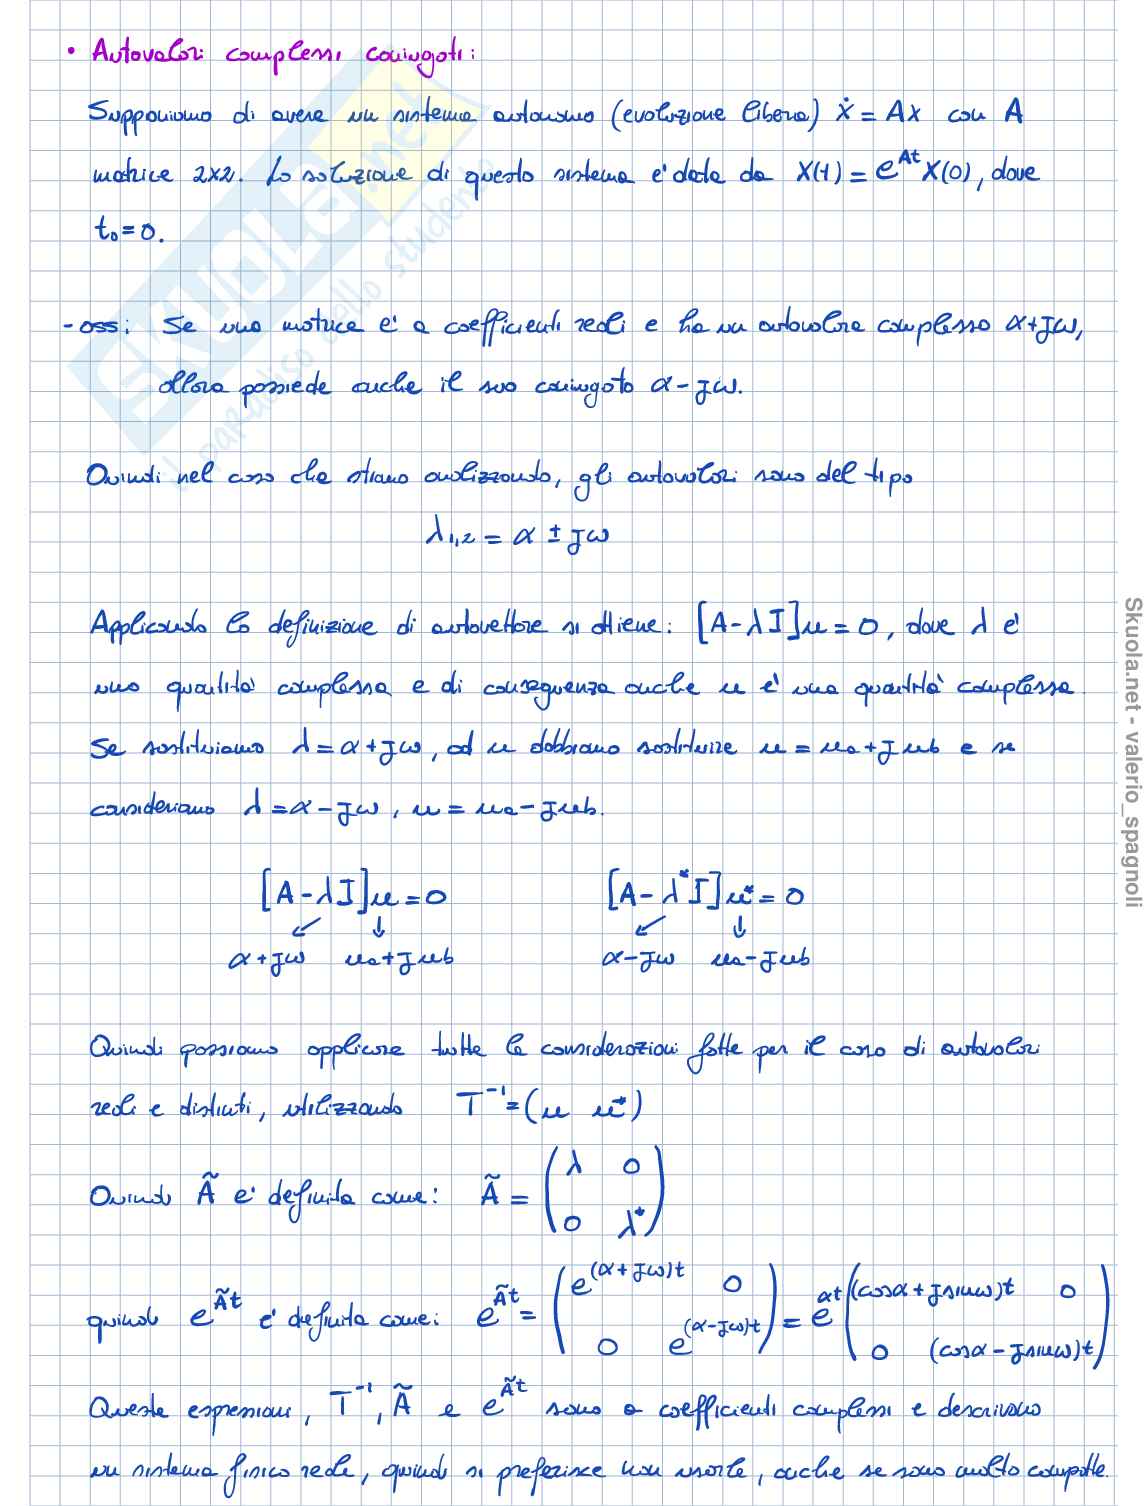 • Autovalori complessi coniugati:
Supponiamo di avere un sistema autonomo (evoluzione libera) ẋ = Ax con A
matrice 2x2. La soluzione di questo sistema e' data da X(t) = e^{At} X(0), dove
t₀ = 0.
- oss: Se una matrice e' a coefficienti reali e ha un autovalore complesso α+jω,
allora possiede anche il suo coniugato α-jω.
Quindi nel caso che stiamo analizzando, gli autovalori sono del tipo
λ₁,₂ = α ± jω
Applicando la definizione di autovettore si ottiene: [A-λI]u = 0, dove λ e'
una quantita' complessa e di conseguenza anche u e' una quantita' complessa.
Se sostituiamo λ = α+jω, ad u dobbiamo sostituire u = ua+jub e se
consideriamo λ = α-jω, u = ua-jub.
[A-λI]u = 0 [A-λ*I]u* = 0
↙ ↓ ↙ ↓
α+jω ua+jub α-jω ua-jub
Quindi possiamo applicare tutte le considerazioni fatte per il caso di autovalori
reali e distinti, utilizzando T⁻¹ = (u u*)
Quindi Ã e' definita come: Ã = (λ 0
0 λ*)
quindi e^{Ãt} e' definita come: e^{Ãt} = (e^{(α+jω)t} 0 = e^{αt} ((cosα+jsinω)t 0
0 e^{(α-jω)t}) 0 (cosα-jsinω)t)
Queste espressioni, T⁻¹, Ã e e^{Ãt} sono a coefficienti complessi e descrivono
un sistema fisico reale, quindi si preferisce non usarle, anche se sono molto compatte.
SKUOLA.net
il paradiso dello studente
Skuola.net - valerio_spagnoli